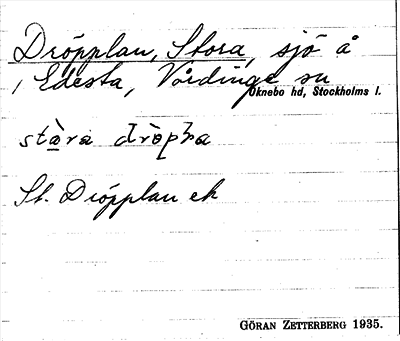 Dröpplan, Stora, sjö å
, Edesta, Vårdinge sn
Oknebo hd, Stockholms l.
stàra dròpḷa
St. Dröpplan ek
GÖRAN ZETTERBERG 1935.